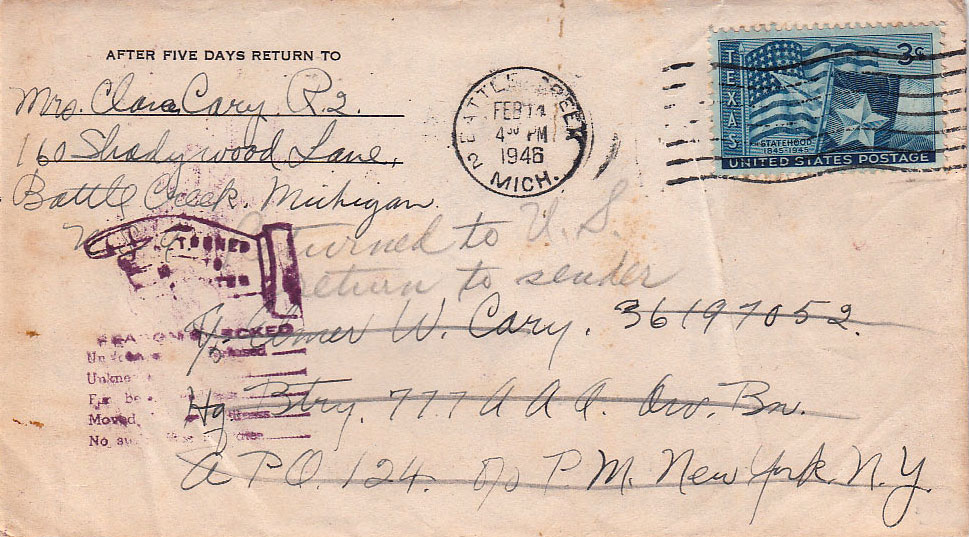 AFTER FIVE DAYS RETURN TO
Mrs. Clara Cary, R2.
160 Shadywood Lane,
Battle Creek, Michigan
BATTLE CREEK
FEB 14
4 30 PM
1946
2 MICH.
TEXAS
3¢
STATEHOOD
1845-1945
UNITED STATES POSTAGE
Returned to U.S.
Return to sender
TO
CHECKED
Moved,
No
W. Cary. 36197052.
Hq Btry. 777 A A A. Bn.
A P O. 124. P. M. New York. N. Y.